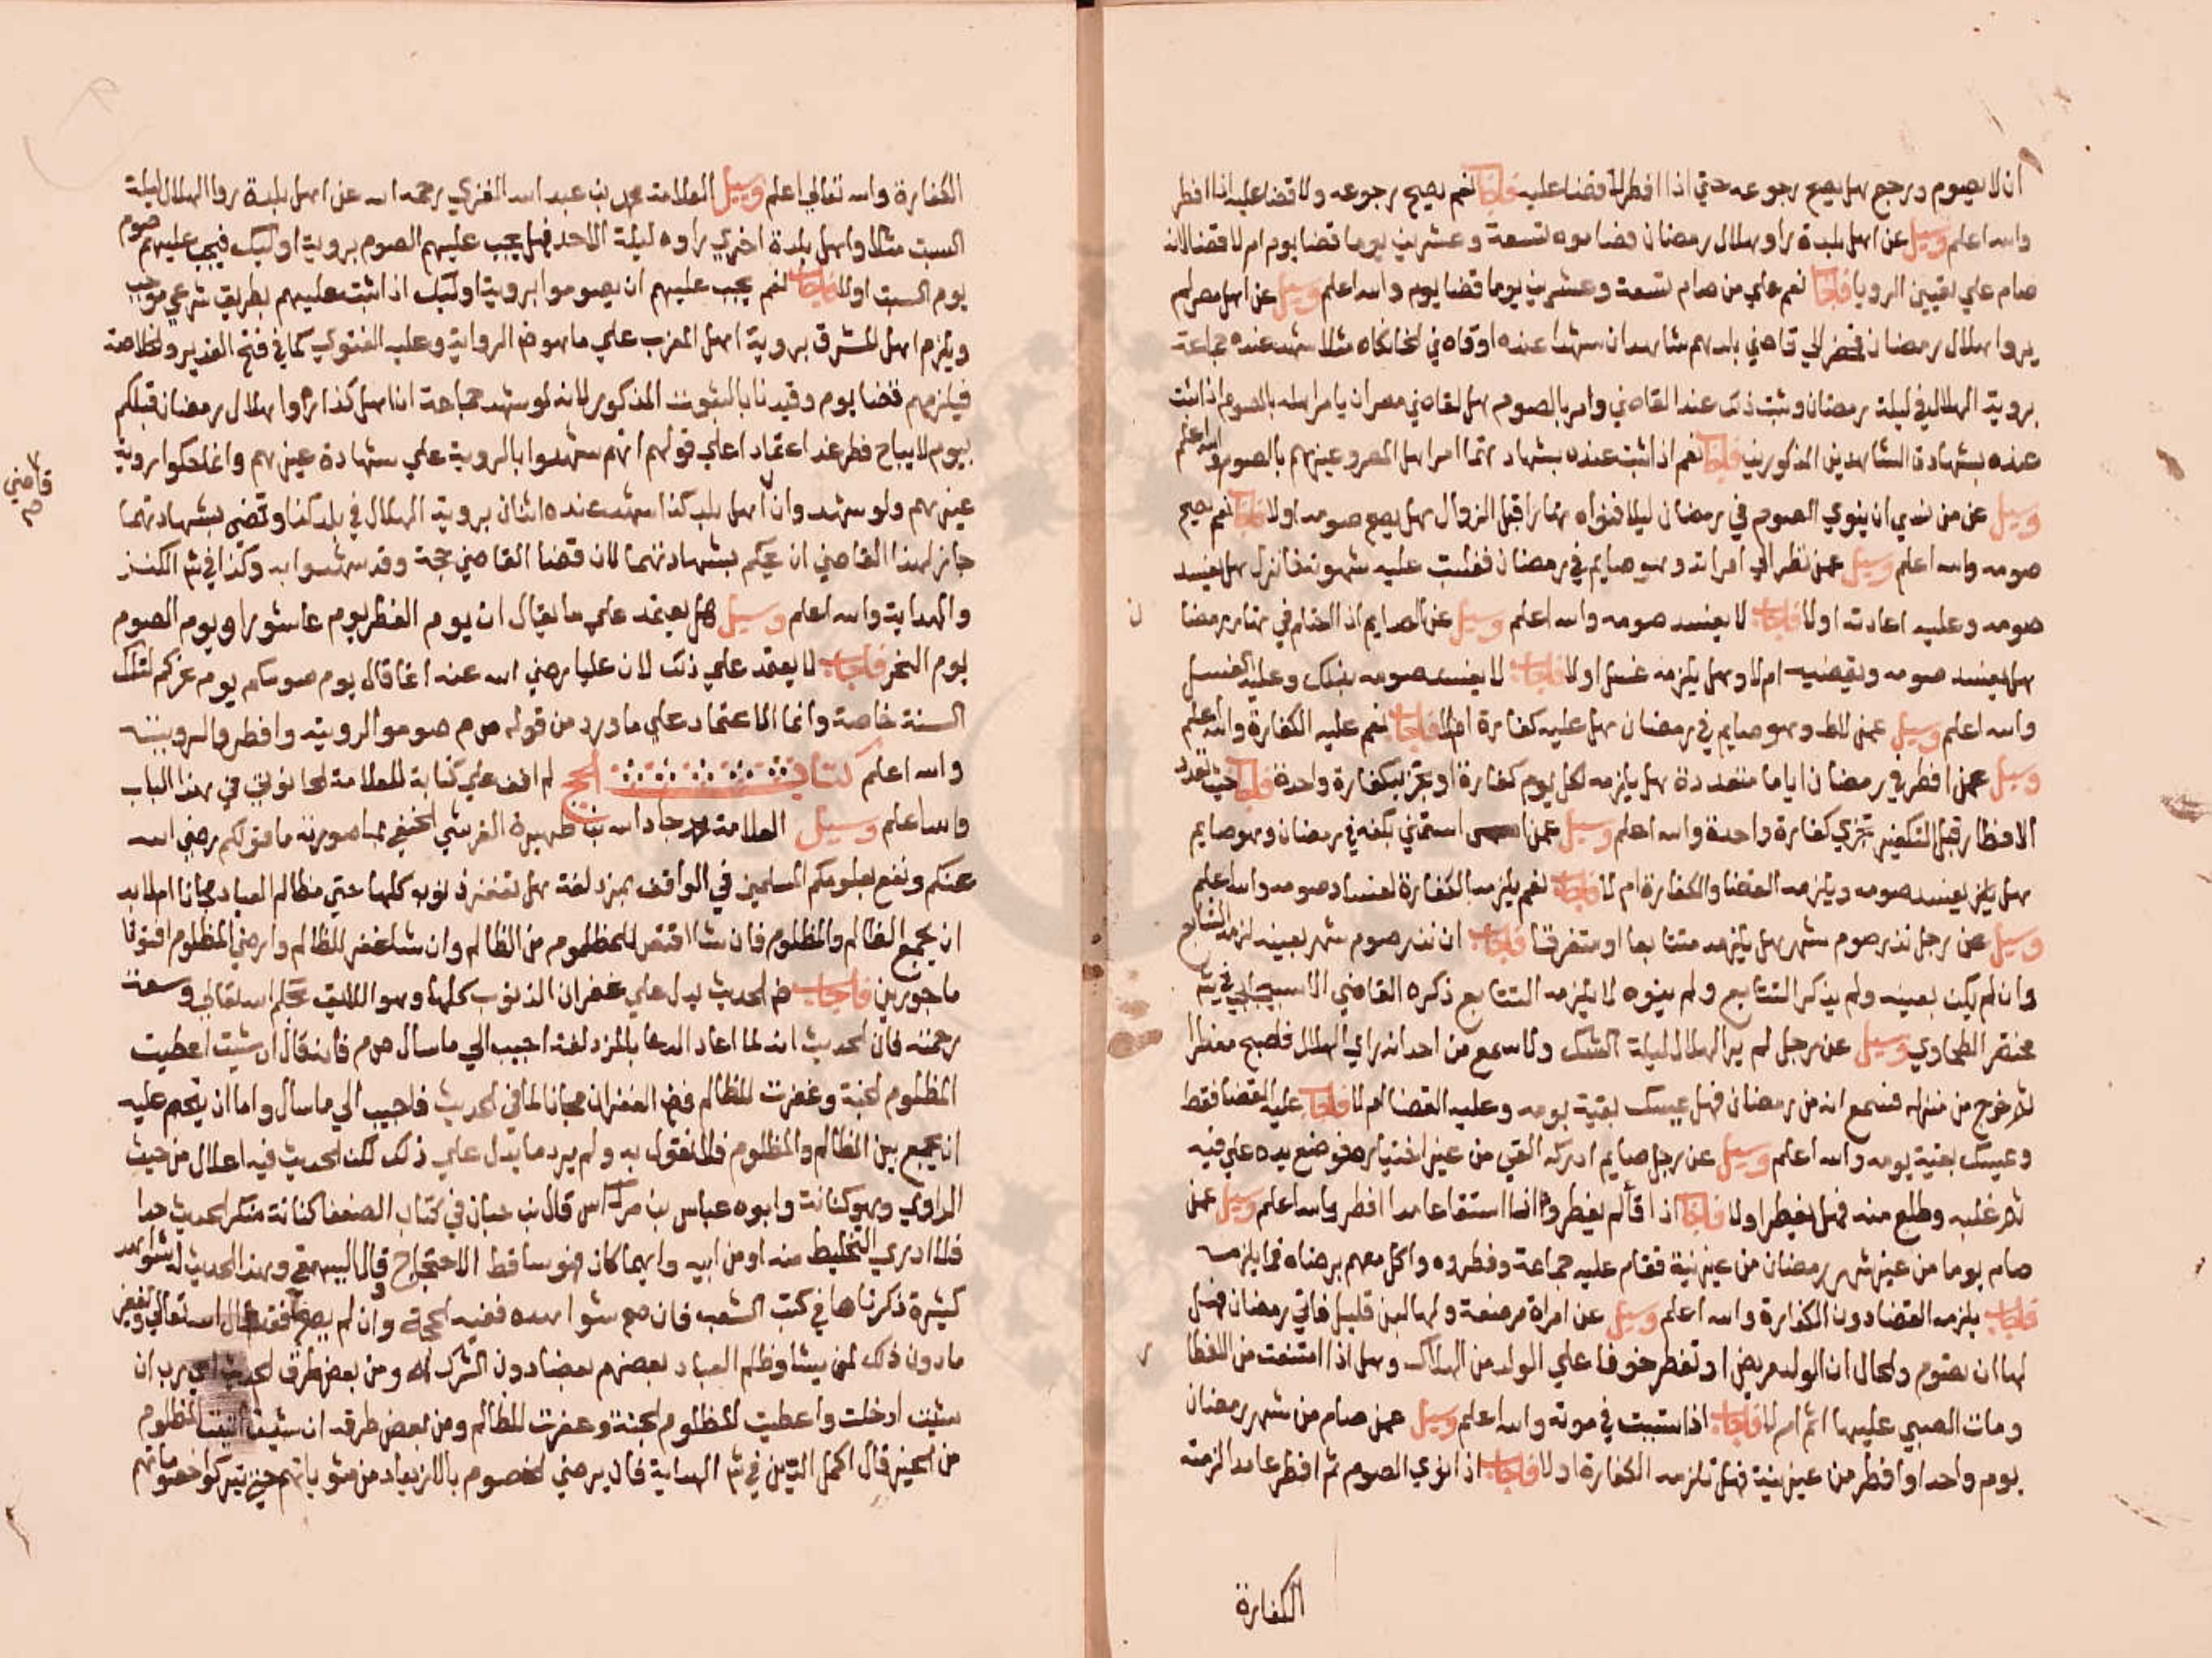 ان لا يصوم ورجع هل يصح رجوعه حتي اذا افطر لا قضا عليه فاجاب نعم يصح رجوعه ولا قضا عليه اذا افطر
والله اعلم وسيل عن اهل بلدة راو هلال رمضان فصاموه تسعة وعشرين يوما قضا يوم ام لا قضا لانه
صام علي تعيين الرويا فاجاب نعم علي من صام تسعة وعشرين يوما قضا يوم والله اعلم وسيل عن اهل مصر لم
يروا هلال رمضان فحضر الي قاضي بلدهم شاهدان شهدا عنده او قاضي الخانكاه مثلا شهد عنده جماعة
بروية الهلال في ليلة رمضان وثبت ذلك عند القاضي وامر بالصوم هل لقاضي مصر ان يامر اهله بالصوم اذا ثبت
عنده بشهادة الشاهدين المذكورين فاجاب نعم اذا ثبت عنده بشهادتهما امر اهل المصر وغيرهم بالصوم والله اعلم
وسيل عن من نسي ان ينوي الصوم في رمضان ليلا فنواه نهارا قبل الزوال هل يصح صومه اولا فاجاب نعم يصح
صومه والله اعلم وسيل عمن نظر الي امراته وهو صايم في رمضان فغلبت عليه شهوته فانزل هل يفسد
صومه وعليه اعادته اولا فاجاب لا يفسد صومه والله اعلم وسيل عن الصايم اذا احتلم في نهار رمضا
ن
هل يفسد صومه ويقضيه ام لا وهل يلزمه غسل اولا فاجاب لا يفسد صومه بذلك وعليه الغسل
والله اعلم وسيل عمن لاط وهو صايم في رمضان هل عليه كفارة ام لا فاجاب نعم عليه الكفارة والله اعلم
وسيل عمن افطر في رمضان اياما متعددة هل يلزمه لكل يوم كفارة او تجزيه كفارة واحدة فاجاب حيث تعدد
الافطار قبل التكفير تجزي كفارة واحدة والله اعلم وسيل عمن استمني بكفه في رمضان وهو صايم
هل يفسد صومه ويلزمه القضا والكفارة ام لا فاجاب نعم يلزمه الكفارة لفساد صومه والله اعلم
وسيل عن رجل نذر صوم شهر هل يلزمه متتابعا او متفرقا فاجاب ان نذر صوم شهر بعينه لزمه التتابع
وان لم يكن بعينه ولم يذكر التتابع ولم ينوه لا يلزمه التتابع ذكره القاضي الاسبيجابي في شرح
مختصر الطحاوي وسيل عن رجل لم ير الهلال ليلة الشك ولا سمع من احد انه راي الهلال فاصبح مفطرا
ثم خرج من منزله فسمع انه من رمضان فهل يمسك بقية يومه وعليه القضا ام لا فاجاب عليه القضا فقط
ويمسك بقية يومه والله اعلم وسيل عن رجل صايم ادركه القي من غير اختياره فوضع يده علي فيه
ثم غلبه وطلع منه فهل يفطر اولا فاجاب اذا قا لم يفطر واذا استقا عامدا افطر والله اعلم وسيل عمن
صام يوما من غير شهر رمضان من غير نية فقام عليه جماعة وفطروه واكل معهم برضاه فما يلزمه
فاجاب يلزمه القضا دون الكفارة والله اعلم وسيل عن امراة مرضعة ولها لبن قليل فاتي رمضان فهل
لها ان تصوم والحال ان الولد مريض او تفطر خوفا علي الولد من الهلاك وهل اذا امتنعت من الفطا
ر
ومات الصبي عليها اثم ام لا فاجاب اذا تسببت في موته والله اعلم وسيل عمن صام من شهر رمضان
يوم واحد او افطر من غير نية فهل تلزمه الكفارة اولا فاجاب اذا نوي الصوم ثم افطر عامدا لزمته
الكفارة
الكفارة والله تعالي اعلم وسيل العلامة محمد بن عبد الله الغزي رحمه الله عن اهل بلدة روا الهلال ليلة
السبت مثلا واهل بلدة اخري راوه ليلة الاحد فهل يجب عليهم الصوم بروية اوليك فيجب عليهم صوم
يوم السبت اولا فاجاب نعم يجب عليهم ان يصوموا بروية اوليك اذا ثبت عليهم بطريق شرعي موجب
ويلزم اهل المشرق بروية اهل المغرب علي ما هو ظ الرواية وعليه الفتوي كما في فتح القدير والخلاصة
فيلزمهم قضا يوم وقيدنا بالثبوت المذكور لانه لو شهد جماعة ان اهل كذا راوا هلال رمضان قبلكم
بيوم لا يباح فطر غد اعتمادا علي قولهم انهم لم يشهدوا بالروية علي شهادة غيرهم وانما حكوا روية
غيرهم ولو شهدوا ان اهل بلد كذا شهد عنده اثنان بروية الهلال في بلد كذا وقضي بشهادتهما
قاضي
صح
جاز لهذا القاضي ان يحكم بشهادتهما لان قضا القاضي حجة وقد شهدوا به وكذا في شرح الكنز
والهداية والله اعلم وسيل هل يعتمد علي ما يقال ان يوم الفطر يوم عاشورا ويوم الصوم
يوم النحر فاجاب لا يعتمد علي ذلك لان عليا رضي الله عنه انما قال يوم صومكم يوم نحركم لتلك
السنة خاصة وانما الاعتماد علي ما ورد من قوله ص م صوموا لرويته وافطروا لرويته
والله اعلم كتاب الحج لم اقف علي كتابة للعلامة الحانوتي في هذا الباب
والله اعلم وسيل العلامة جاد الله بن ظهيرة القرشي الحنفي بما صورته ما قولكم رضي الله
عنكم ونفع بعلومكم المسلمين في الواقف بمزدلفة هل تغفر ذنوبه كلها حتي مظالم العباد مجانا ام لا بد
ان يجمع الظالم والمظلوم فان شا اقتص للمظلوم من الظالم وان شا غفر للظالم وارضي المظلوم افتونا
ماجورين فاجاب ظ الحديث يدل علي غفران الذنوب كلها وهو اللايق بحلم الله تعالي وسعة
رحمته فان الحديث انه لما اعاد الدعا بالمزدلفة اجيب الي ما سال ص م فانه قال ان شيت اعطيت
المظلوم الجنة وغفرت للظالم فظ الغفران مجانا لما في الحديث فاجيب الي ما سال واما ان يحكم عليه
ان يجمع بين الظالم والمظلوم فلا نقول به ولم يرد ما يدل علي ذلك لكن الحديث فيه اعلال من حيث
الراوي وهو كنانة وابوه عباس بن مرداس قال بن حبان في كتاب الضعفا كنانة منكر الحديث جدا
فلا ادري التخليط منه او من ابيه وايهما كان فهو ساقط الاحتجاج وقال البيهقي وهذا الحديث له شواهد
كثيرة ذكرناها في كتب الشعب فان صح شواهده ففيه الحجة وان لم يصح فقد قال الله تعالي ويغفر
ما دون ذلك لمن يشا وظلم العباد بعضهم بعضا دون الشرك اه ومن بعض طرق الحديث اي رب ان
شيت ادخلت واعطيت المظلوم الجنة وغفرت للظالم ومن بعض طرقه ان شيت المظلوم
من الخير قال اكمل الدين في شرح الهداية فان يرضي الخصوم بالازدياد من مثوباتهم حتي يتركوا خصوماتهم